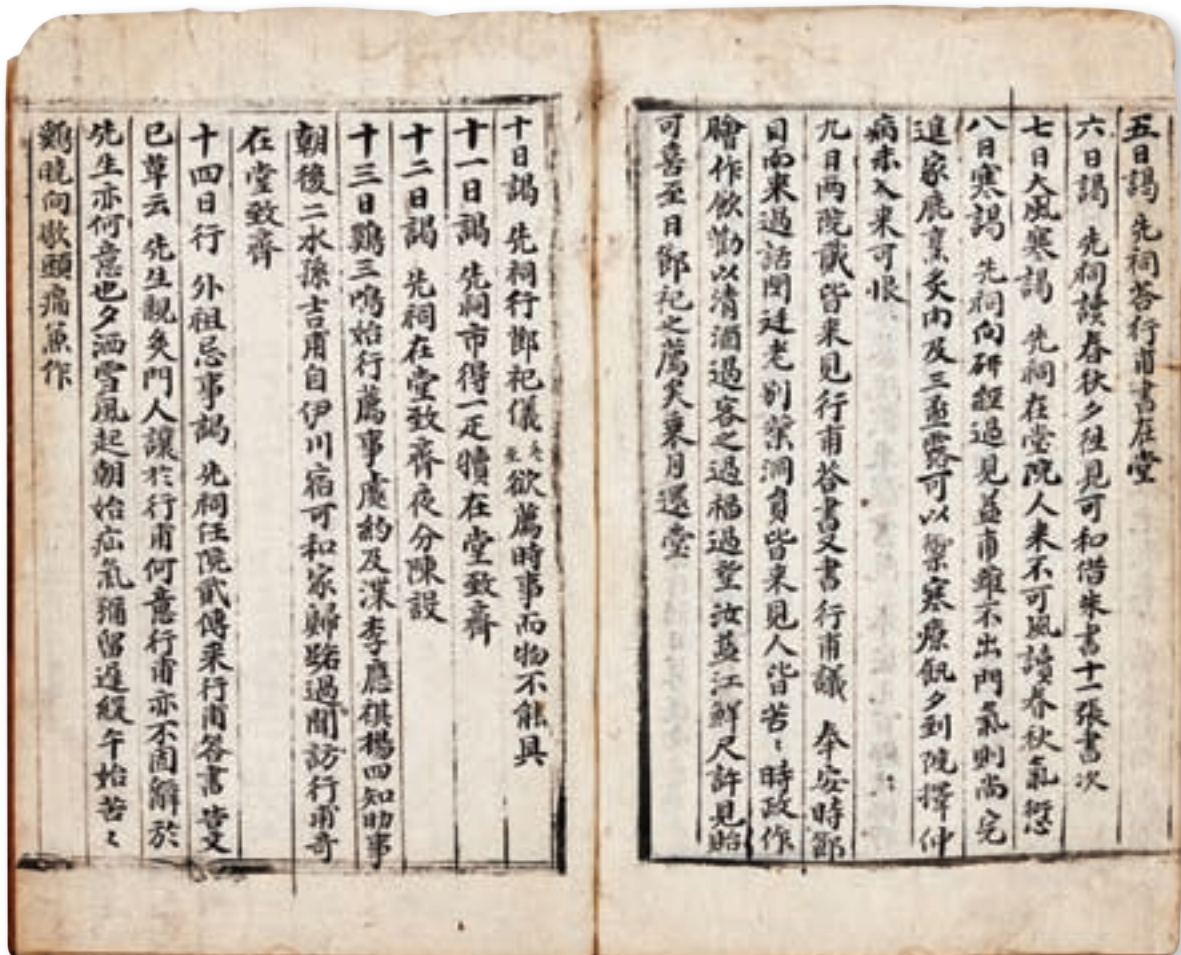 五日謁 先祠答行甫書在堂
六日謁 先祠讀春秋夕往見可和借朱書十一張書次
七日大風寒謁 先祠在堂院人來不可風讀春秋氣
八日寒謁 先祠向研經過見益甫雖不出門氣則尚完
進家鹿烹炙肉及三盃露可以禦寒療飢夕到院擇仲
病未入來可恨
九日兩院貳皆來見行甫答書又書行甫議 奉安時節
日而來過話聞廷老別葉洞負皆來見人皆苦〻時政作
膾作飲勸以清酒過客之過福過望汝益江鮮尺許見貽
可喜至日節祀之薦矣乘月還堂
十日謁 先祠行節祀儀 欲薦時事而物不能具
十一日謁 先祠市得一疋犢在堂致齊
十二日謁 先祠在堂致齊夜分陳設
十三日鷄三鳴始行薦事處約及渫李應祺楊四知助事
朝後二水孫吉甫自伊川宿可和家歸路過聞訪行甫奇
在堂致齊
十四日行 外祖忌事謁 先祠任院貳傳來行甫答書告文
已草云 先生親炙門人讓於行甫何意行甫亦不固辭於
先生亦何意也夕洒雪風起朝始疝氣彌留遲緩午始苦〻
鷄曉向歇頭痛兼作